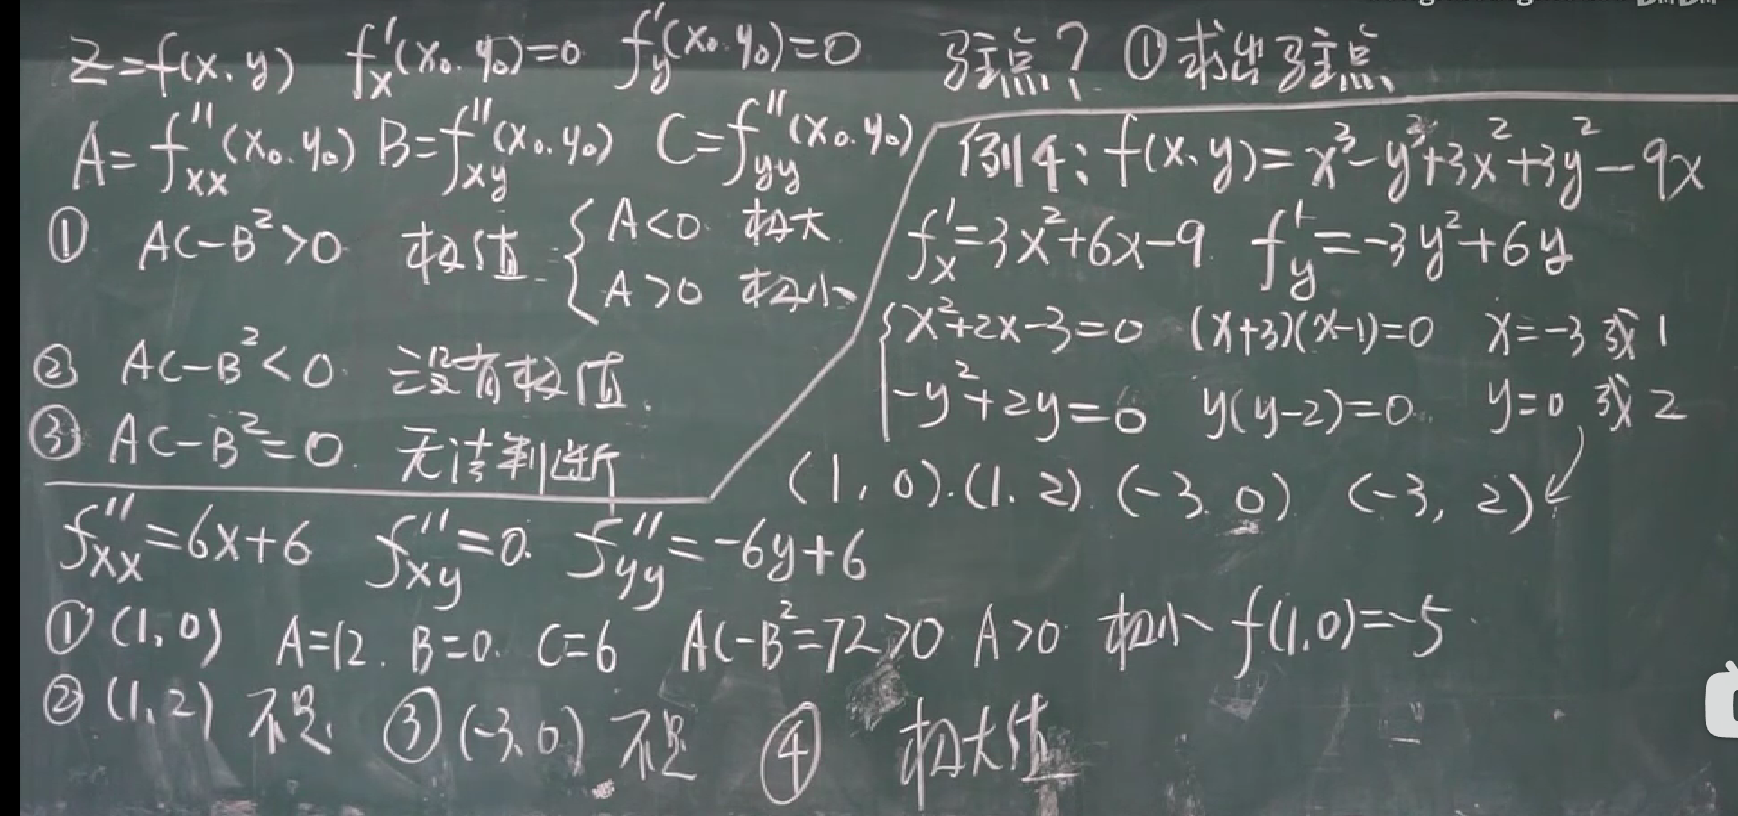 z=f(x,y) f'x(x₀,y₀)=0 f'y(x₀,y₀)=0 驻点? ①求出驻点
A=f''xx(x₀,y₀) B=f''xy(x₀,y₀) C=f''yy(x₀,y₀)
① AC-B²>0 极值 { A<0 极大
A>0 极小
② AC-B²<0 没有极值.
③ AC-B²=0. 无法判断
例4: f(x,y)=x³-y³+3x²+3y²-9x
f'x=3x²+6x-9 f'y=-3y²+6y
{ x²+2x-3=0 (x+3)(x-1)=0 x=-3或1
-y²+2y=0 y(y-2)=0 y=0或2
(1,0).(1,2).(-3,0) (-3,2)
f''xx=6x+6 f''xy=0. f''yy=-6y+6
①(1,0) A=12. B=0. C=6 AC-B²=72>0 A>0 极小 f(1,0)=-5
②(1,2)不是 ③(-3,0)不是 ④ 极大值